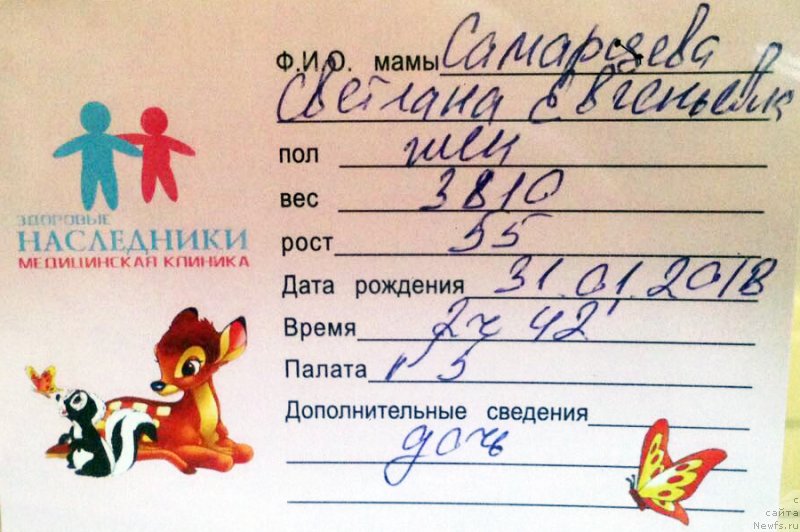 Ф.И.О. мамы Самарцева
Светлана Евгеньевн
пол жен
вес 3810
рост 55
ЗДОРОВЫЕ
НАСЛЕДНИКИ
МЕДИЦИНСКАЯ КЛИНИКА
Дата рождения 31.01.2018
Время 2ч 42'
Палата 5
Дополнительные сведения
дочь
с
сайта
Newfs.ru